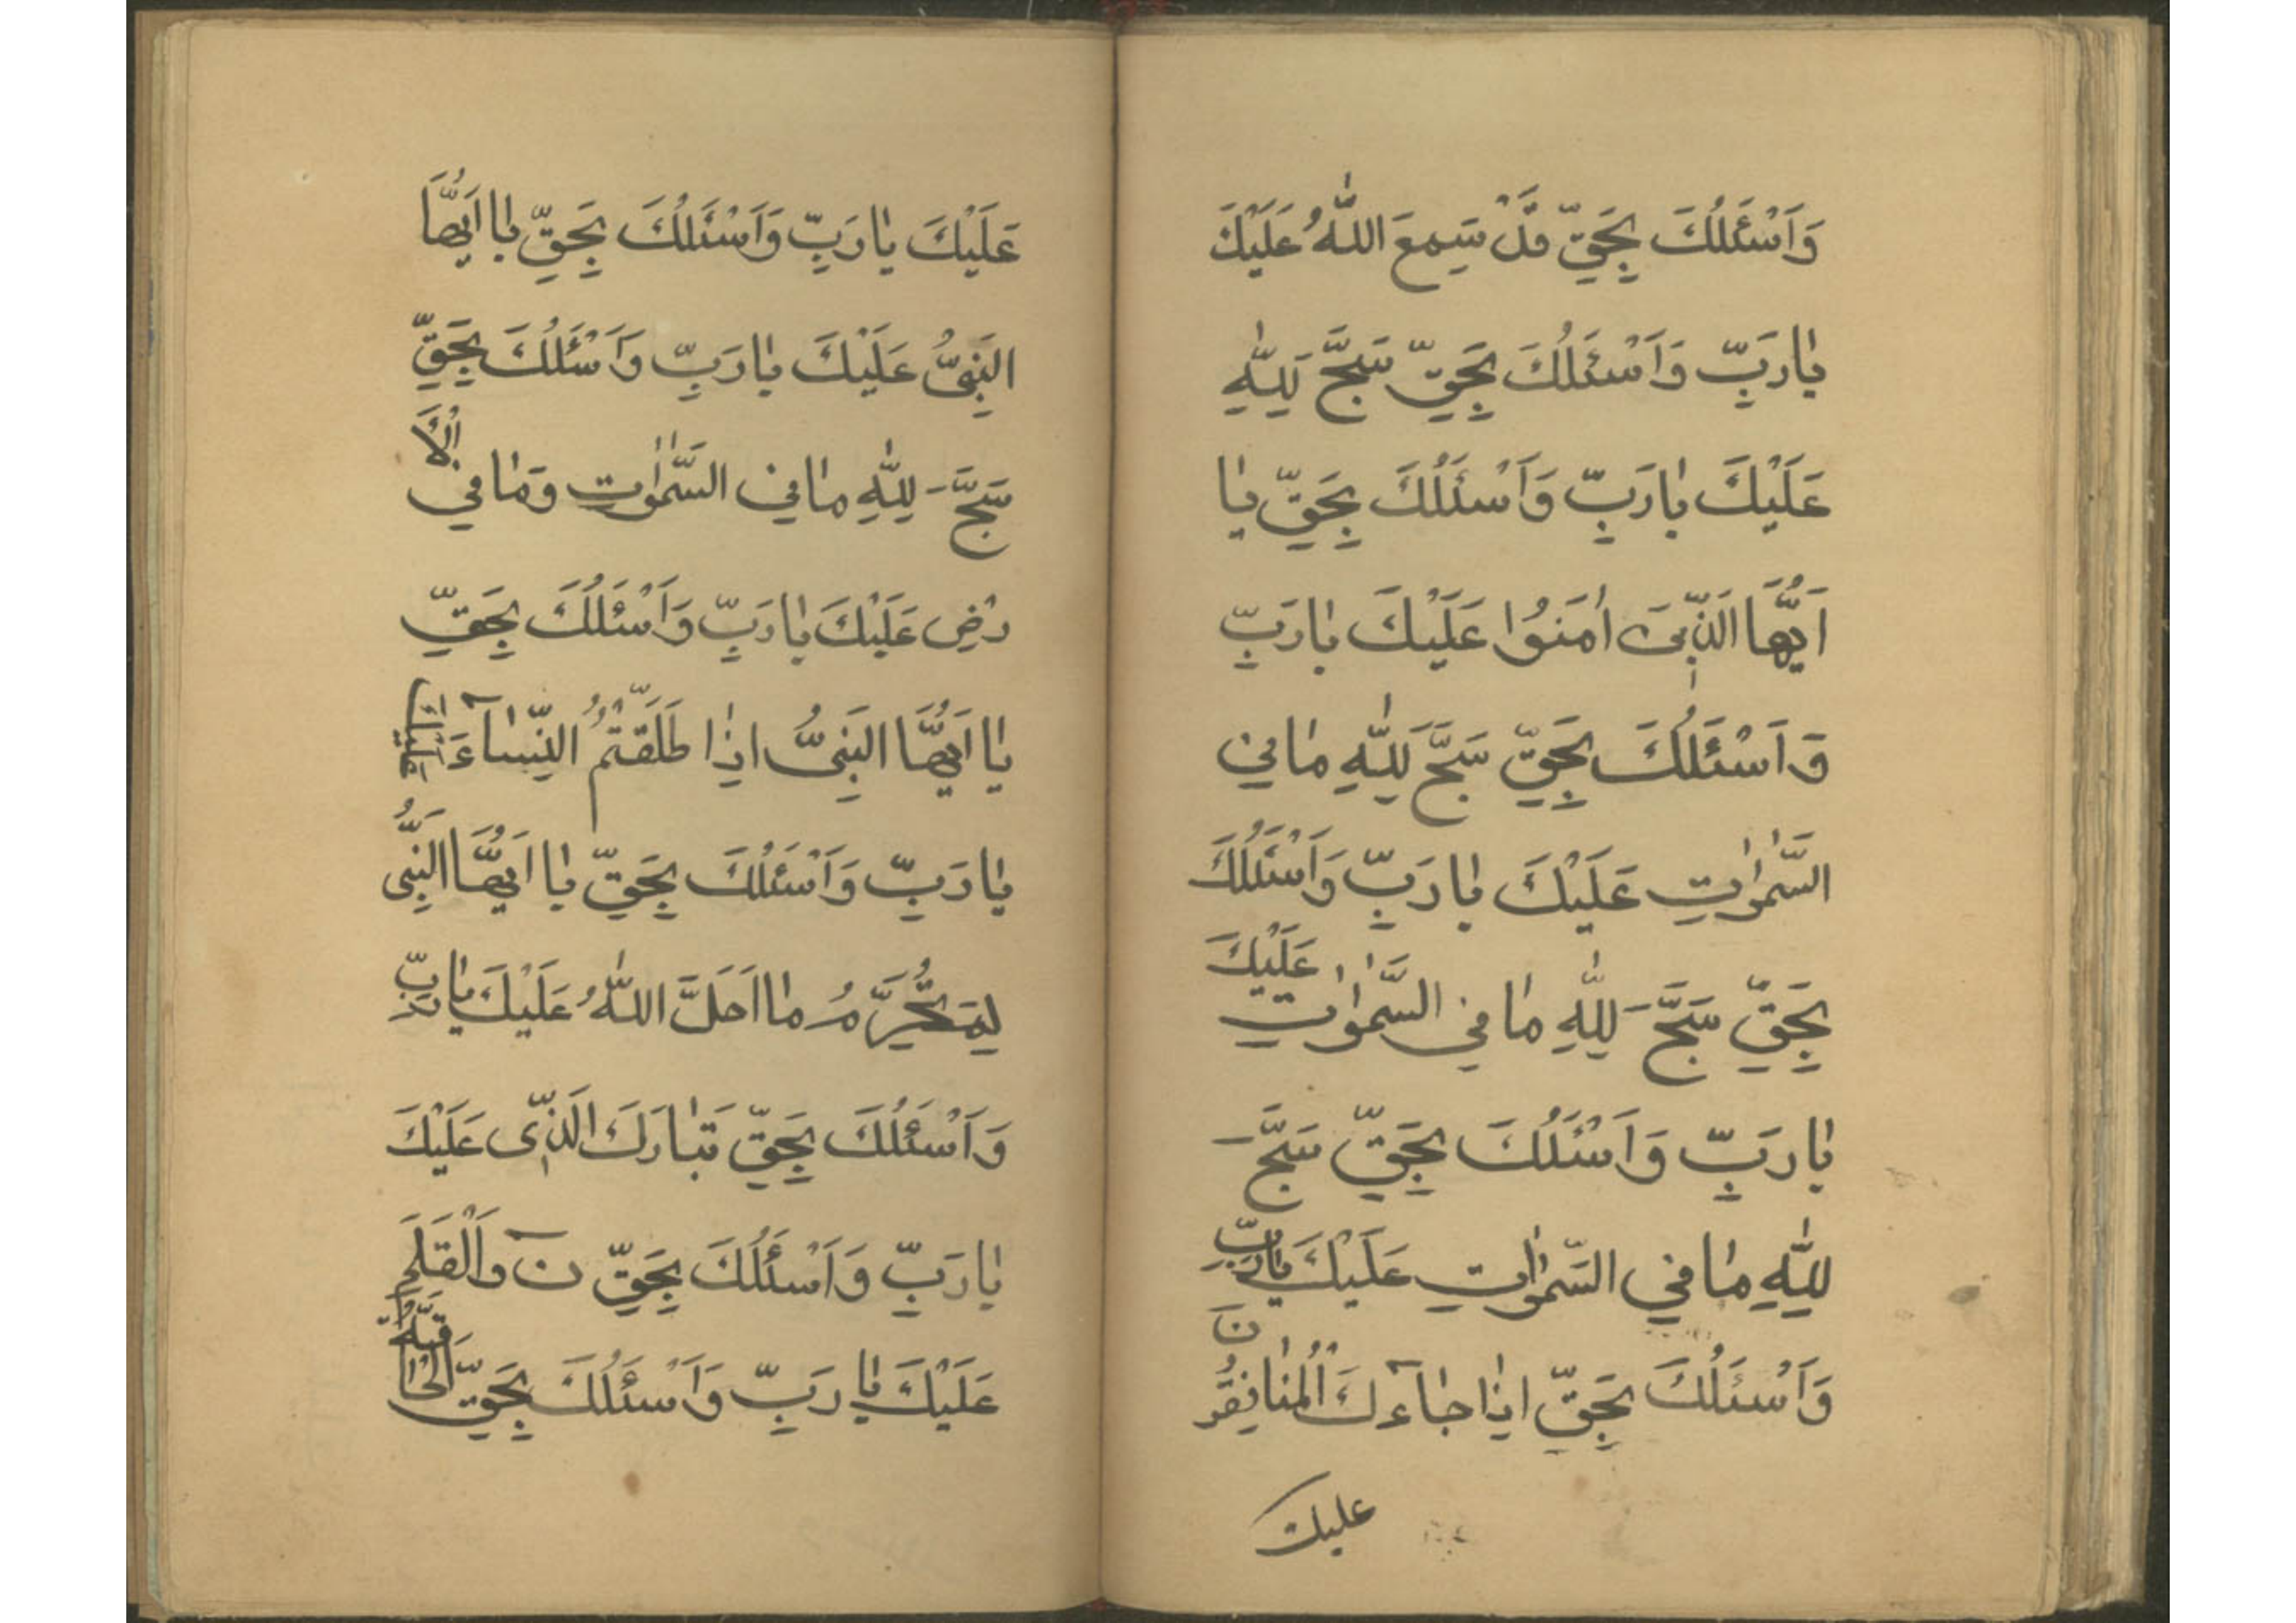 وَاَسْئَلُكَ بِحَقِّ قَدْ سَمِعَ اللّٰهُ عَلَيْكَ
يٰا رَبِّ وَاَسْئَلُكَ بِحَقِّ سَبَّحَ لِلّٰهِ
عَلَيْكَ يٰا رَبِّ وَاَسْئَلُكَ بِحَقِّ يٰا
اَيُّهَا الَّذٖينَ اٰمَنُوا عَلَيْكَ يٰا رَبِّ
وَاَسْئَلُكَ بِحَقِّ سَبَّحَ لِلّٰهِ مٰا فِي
السَّمٰوٰاتِ عَلَيْكَ يٰا رَبِّ وَاَسْئَلُكَ
بِحَقِّ سَبَّحَ لِلّٰهِ مٰا فِي السَّمٰوٰاتِ عَلَيْكَ
يٰا رَبِّ وَاَسْئَلُكَ بِحَقِّ سَبَّحَ
لِلّٰهِ مٰا فِي السَّمٰوٰاتِ عَلَيْكَ يٰا رَبِّ
وَاَسْئَلُكَ بِحَقِّ اِذٰا جٰاۤءَكَ الْمُنٰافِقُونَ
عليك
عَلَيْكَ يٰا رَبِّ وَاَسْئَلُكَ بِحَقِّ يٰا اَيُّهَا
النَّبِىُّ عَلَيْكَ يٰا رَبِّ وَاَسْئَلُكَ بِحَقِّ
سَبَّحَ لِلّٰهِ مٰا فِي السَّمٰوٰاتِ وَمٰا فِي الْاَ
رْضِ عَلَيْكَ يٰا رَبِّ وَاَسْئَلُكَ بِحَقِّ
يٰا اَيُّهَا النَّبِىُّ اِذٰا طَلَّقْتُمُ النِّسٰاۤءَ عَلَيْكَ
يٰا رَبِّ وَاَسْئَلُكَ بِحَقِّ يٰا اَيُّهَا النَّبِىُّ
لِمَ تُحَرِّمُ مٰا اَحَلَّ اللّٰهُ عَلَيْكَ يٰا رَبِّ
وَاَسْئَلُكَ بِحَقِّ تَبٰارَكَ الَّذٖى عَلَيْكَ
يٰا رَبِّ وَاَسْئَلُكَ بِحَقِّ نۤ وَالْقَلَمِ
عَلَيْكَ يٰا رَبِّ وَاَسْئَلُكَ بِحَقِّ الْحٰاۤقَّةُ